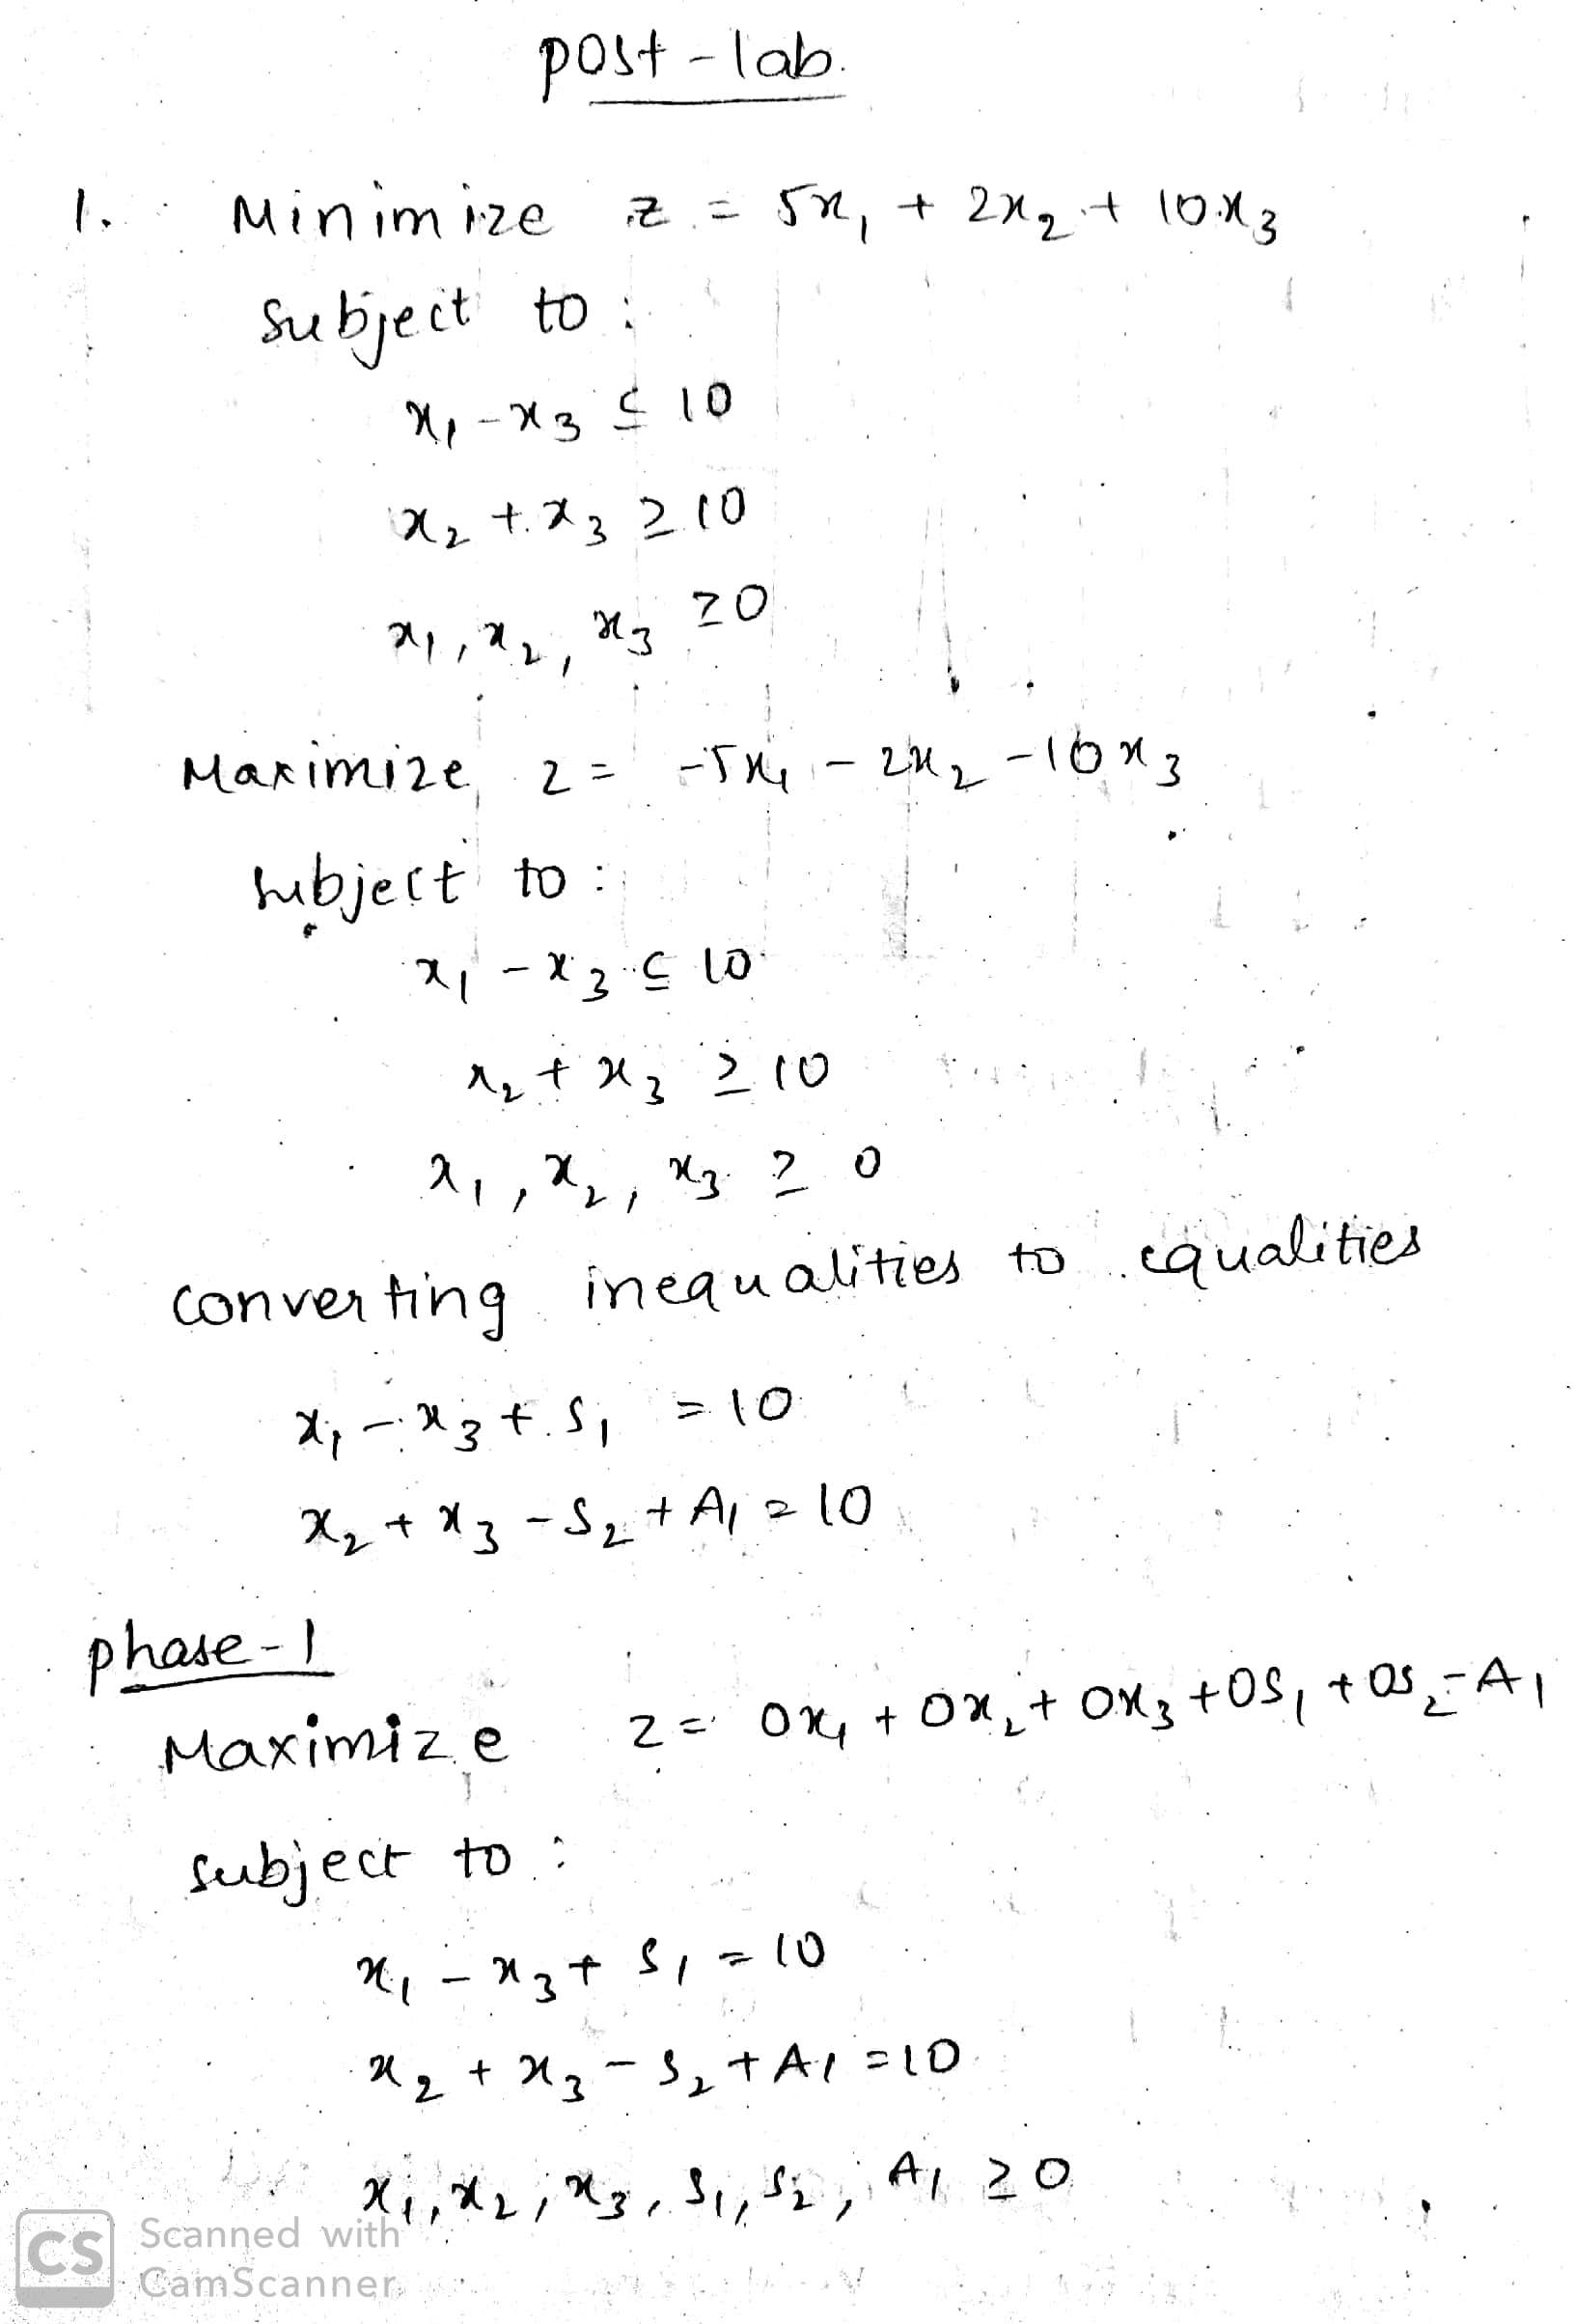 post-lab.
1. Minimize z = 5x₁ + 2x₂ + 10x₃
subject to :
x₁ - x₃ ≤ 10
x₂ + x₃ ≥ 10
x₁, x₂, x₃ ≥ 0
Maximize z = -5x₁ - 2x₂ - 10x₃
subject to :
x₁ - x₃ ≤ 10
x₂ + x₃ ≥ 10
x₁, x₂, x₃ ≥ 0
converting inequalities to equalities
x₁ - x₃ + s₁ = 10
x₂ + x₃ - s₂ + A₁ = 10
phase-1
Maximize z = 0x₁ + 0x₂ + 0x₃ + 0s₁ + 0s₂ - A₁
subject to :
x₁ - x₃ + s₁ = 10
x₂ + x₃ - s₂ + A₁ = 10
x₁, x₂, x₃, s₁, s₂, A₁ ≥ 0
CS Scanned with
CamScanner